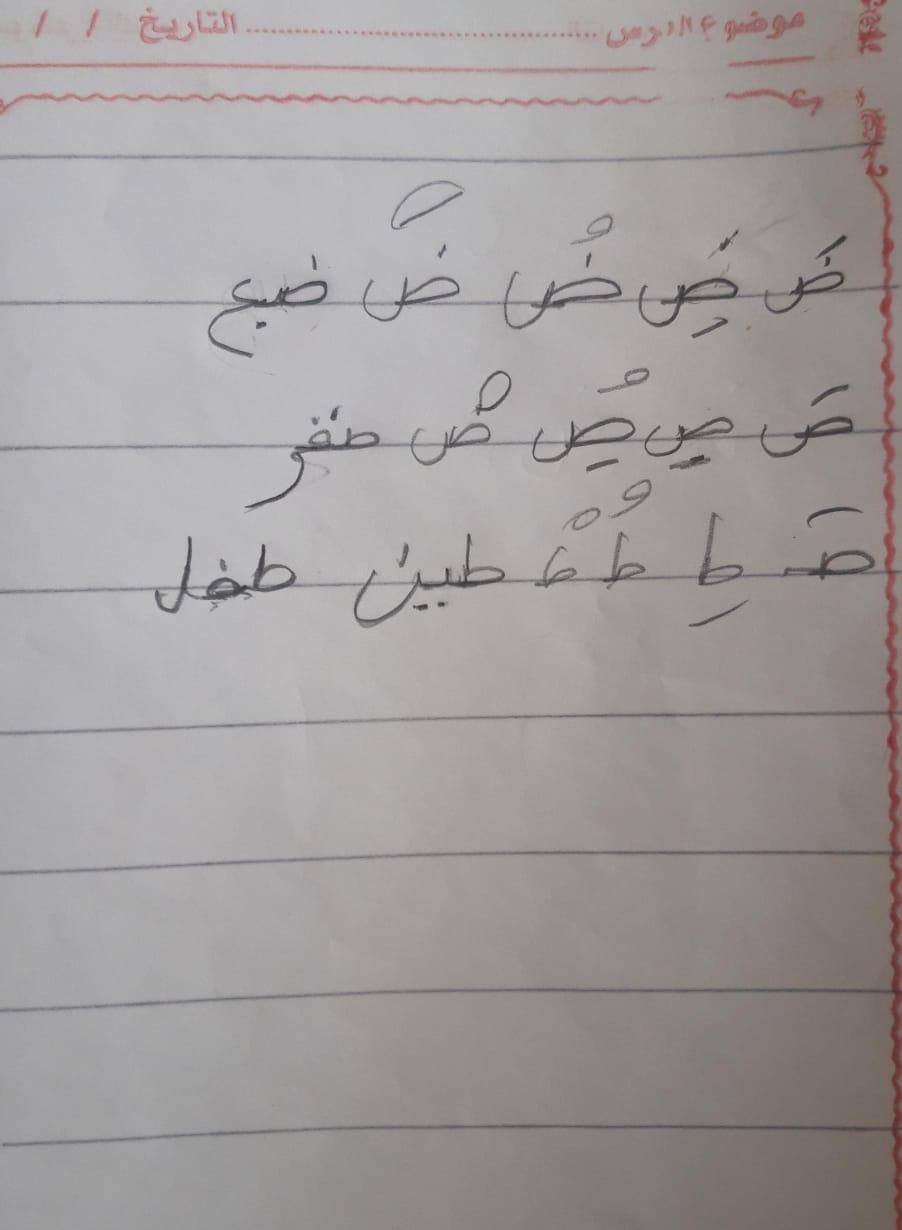 موضوع الدرس ........................ التاريخ / /
ضَ ضِ ضُ ضْ ضبع
صَ صِ صُ صْ صقر
صَ طِ طُ طْ طين طفل